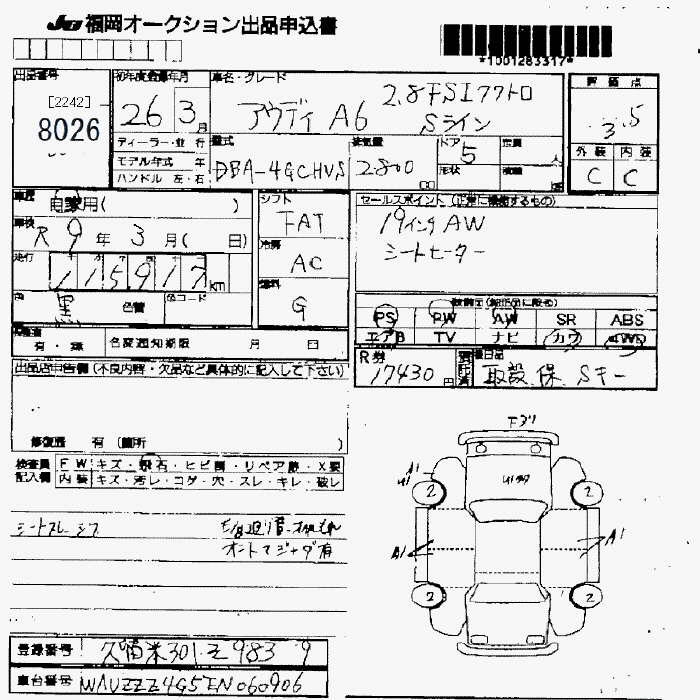 JU 福岡オークション出品申込書
*1001283317*
出品番号
[2242]
8026
初年度登録年月
26 3月
車名・グレード
アウディ A6
2.8FSIクワトロ
Sライン
評価点
3.5
外装 内装
C C
ディーラー・並行
モデル年式 年
ハンドル 左・右
型式
DBA-4GCHVS
排気量
2800 CC
ドア 5
形状
定員 人
積載
車歴
自家用( )
車検
R 9年 3月( 日)
走行
115917km
色
黒 色替
色コード
シフト
FAT
冷房
AC
燃料
G
セールスポイント (正常に機能するもの)
19インチAW
シートヒーター
装備品(純正品に限る)
PS PW AW SR ABS
エアB TV ナビ カワ 4WD
有・無
名変通知期限 月 日
R券
17430円
後日品
取説 保 Sキー
出品店申告欄 (不良内容・欠品など具体的に記入して下さい)
修復歴 有 (箇所 )
検査員記入欄
FW キズ・飛石・ヒビ割・リペア跡・X要
内装 キズ・汚レ・コゲ・穴・スレ・キレ・破レ
シートスレ シワ
下スリ
A1
U1
2
2
A1
A1
2
2
登録番号
久留米301 983 9
車台番号
WAUZZZ4G5EN060906